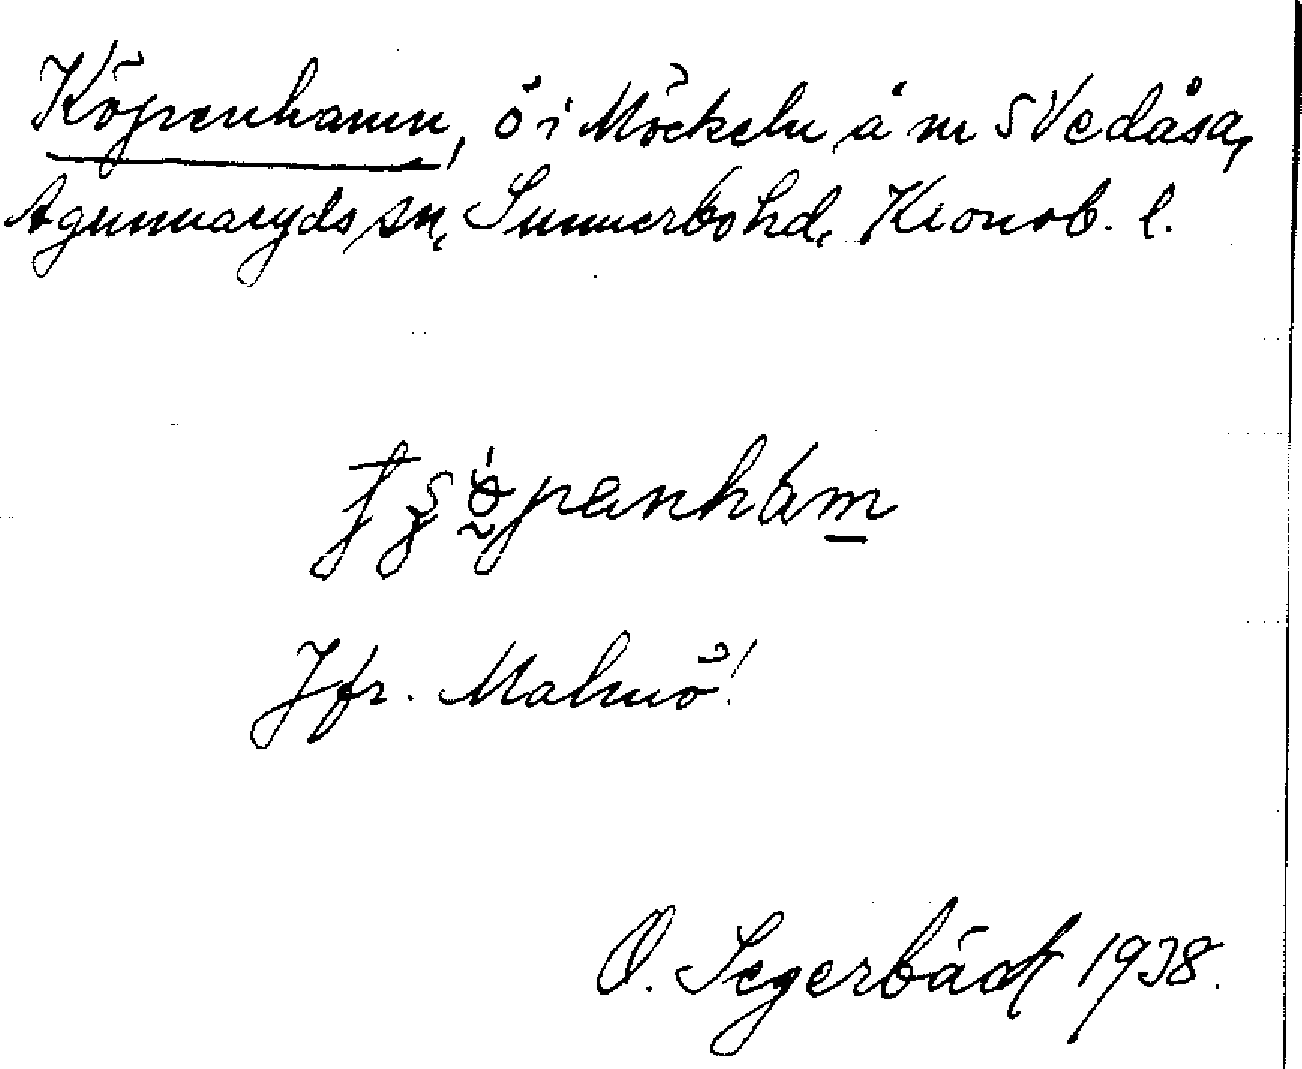 Köpenhamn, ö i Möckeln å m S Vedåsa,
Agunnaryds sn, Sunnerbo hd, Kronob. l.
Jfr. Malmö!
O. Segerbäck 1938.